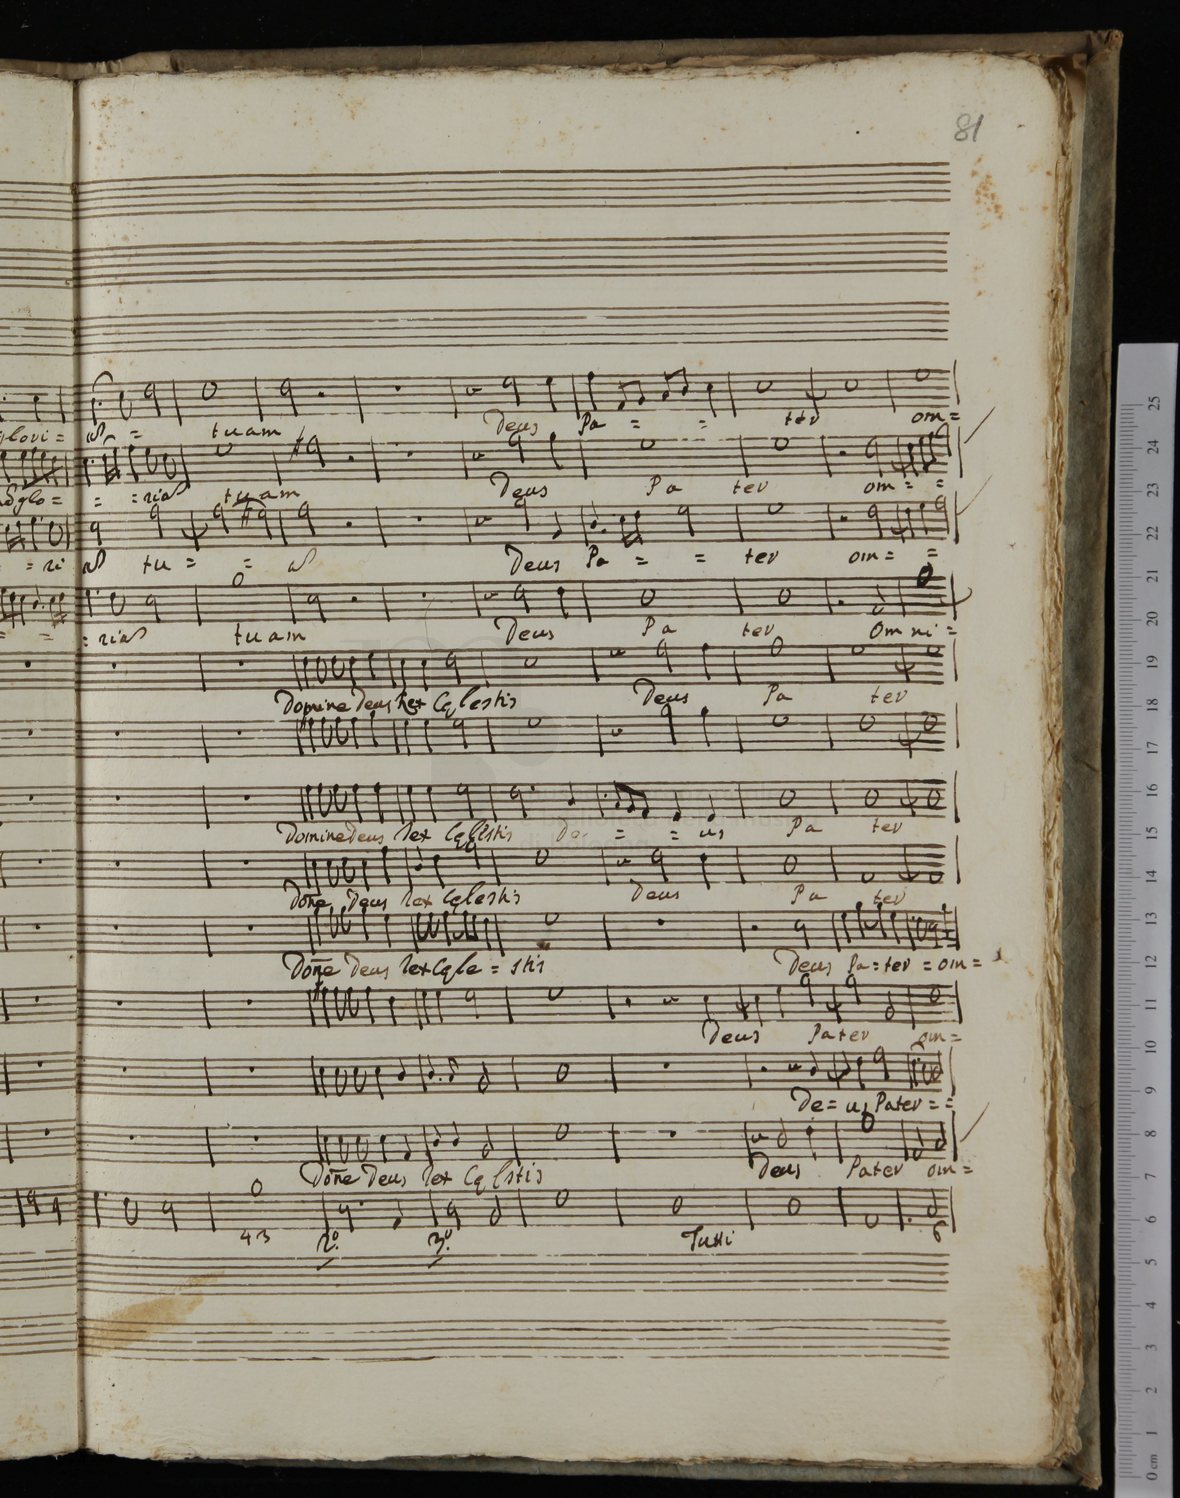 81
glovi = = tuam Deus Pa = = ter om=
glo= = =ria tuam Deus Pa ter om= =
= ri tu = = Deus Pa = = ter om= =
:ria tuam Deus Pa ter Omni=
Domine Deus Rex Celestis Deus Pa ter
Domine Deus Rex Celestis De = = us Pa ter
Dõne Deus Rex Celestis Deus Pa ter
Dõne Deus Rex Cele = stis Deus Pa=ter = om=
Deus Pater om=
De=us Pater= =
Dõne Deus Rex Celestis Deus Pater om=
43 2.º 3.º Tutti 6
25
24
23
22
21
20
19
18
17
16
15
14
13
12
11
10
9
8
7
6
5
4
3
2
1
0 cm